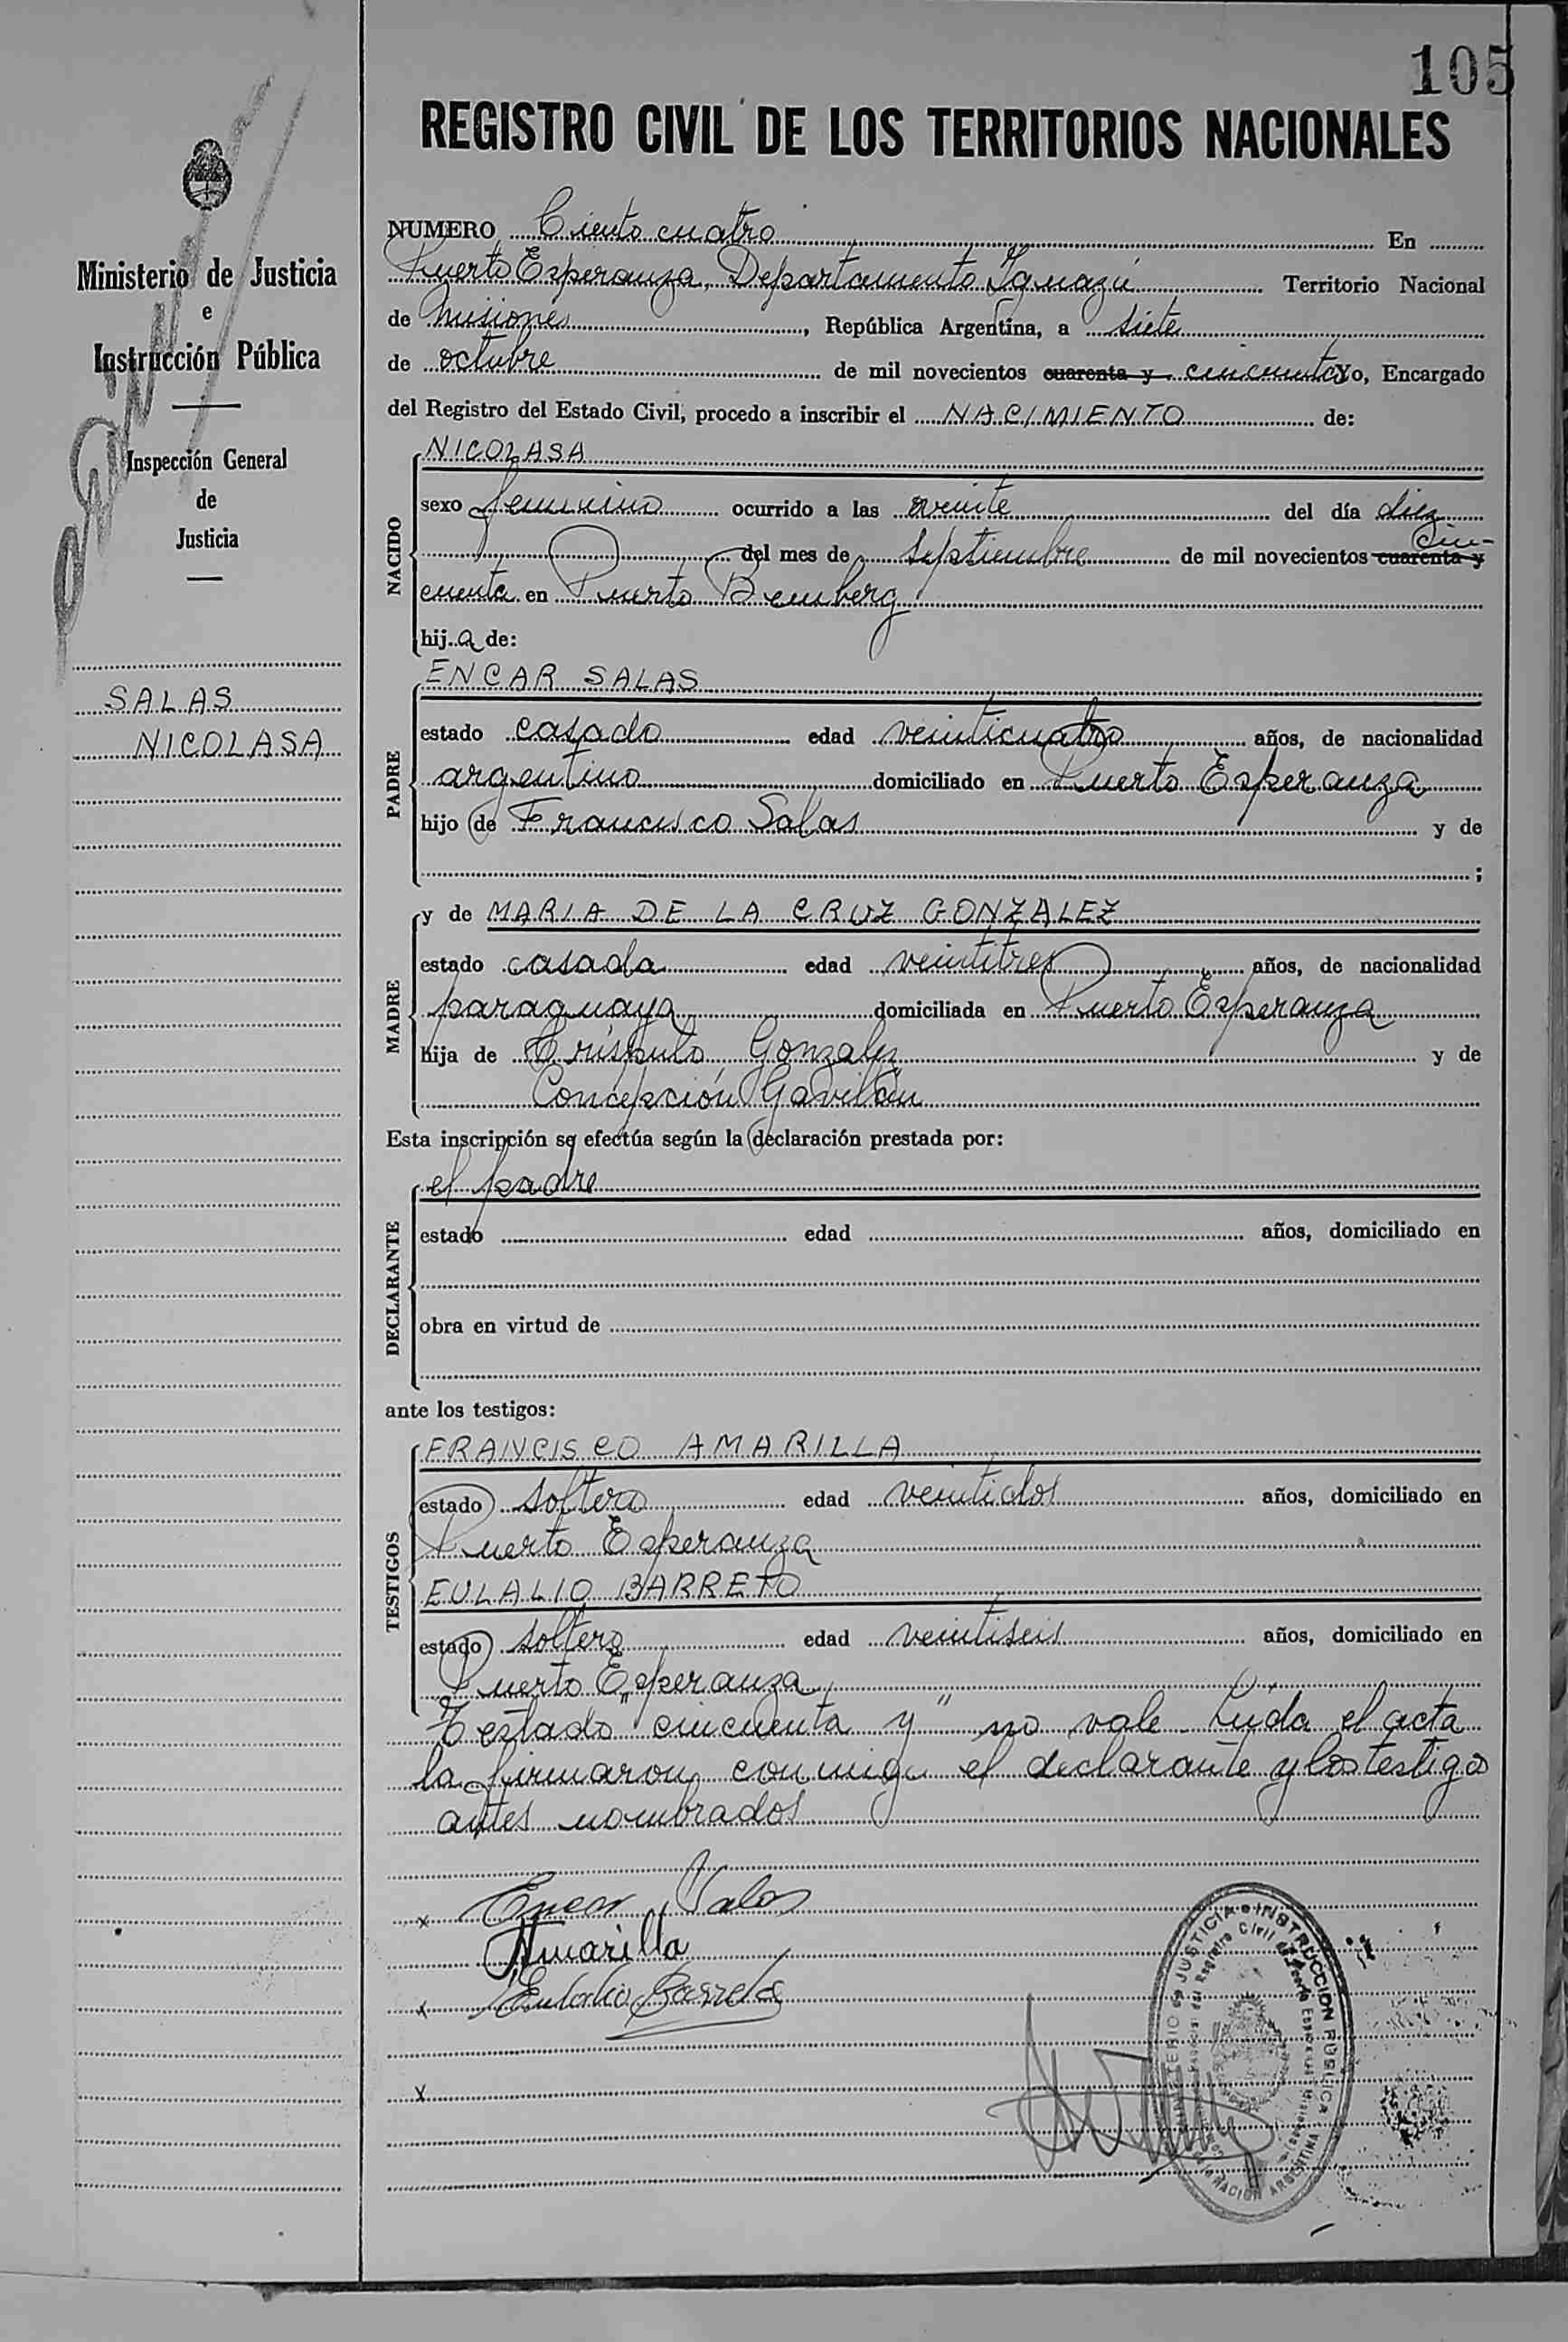 105
REGISTRO CIVIL DE LOS TERRITORIOS NACIONALES
Ministerio de Justicia
e
Instrucción Pública
Inspección General
de
Justicia
SALAS
NICOLASA
NUMERO Ciento cuatro En
Puerto Esperanza, Departamento Iguazú Territorio Nacional
de Misiones, República Argentina, a siete
de octubre de mil novecientos cuarenta y cincuenta Yo, Encargado
del Registro del Estado Civil, procedo a inscribir el NACIMIENTO de:
NACIDO
NICOLASA
sexo femenino ocurrido a las veinte del día diez
del mes de septiembre de mil novecientos cuarenta y cin-
cuenta en Puerto Bemberg
hija de:
PADRE
ENCAR SALAS
estado casado edad veinticuatro años, de nacionalidad
argentino domiciliado en Puerto Esperanza
hijo de Francisco Salas y de
;
MADRE
y de MARIA DE LA CRUZ GONZALEZ
estado casada edad veintitres años, de nacionalidad
paraguaya domiciliada en Puerto Esperanza
hija de Gonzalez y de
Concepción Gavilan
Esta inscripción se efectúa según la declaración prestada por:
DECLARANTE
el padre
estado edad años, domiciliado en
obra en virtud de
ante los testigos:
TESTIGOS
FRANCISCO AMARILLA
estado soltero edad veintidos años, domiciliado en
Puerto Esperanza
EULALIO BARRETO
estado soltero edad veintiseis años, domiciliado en
Puerto Esperanza
Testado "cincuenta y" no vale. Leída el acta
la firmaron conmigo el declarante y los testigos
antes nombrados
x Encar Salas
Amarilla
x Eulalio Barreto
x
MINISTERIO DE JUSTICIA e INSTRUCCION PUBLICA
NACION ARGENTINA